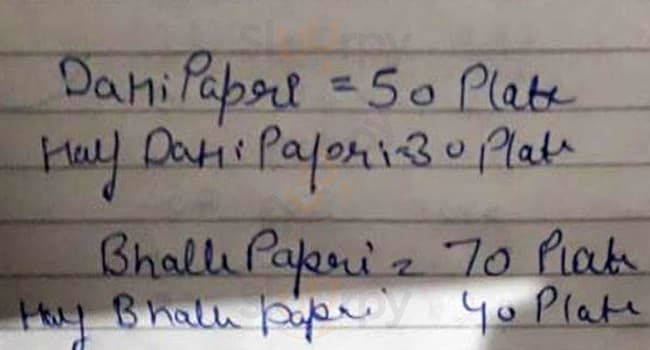 Dahi Papri = 50 Plate
Half Dahi Papri = 30 Plate
Bhalle Papri = 70 Plate
Half Bhalle papri 40 Plate